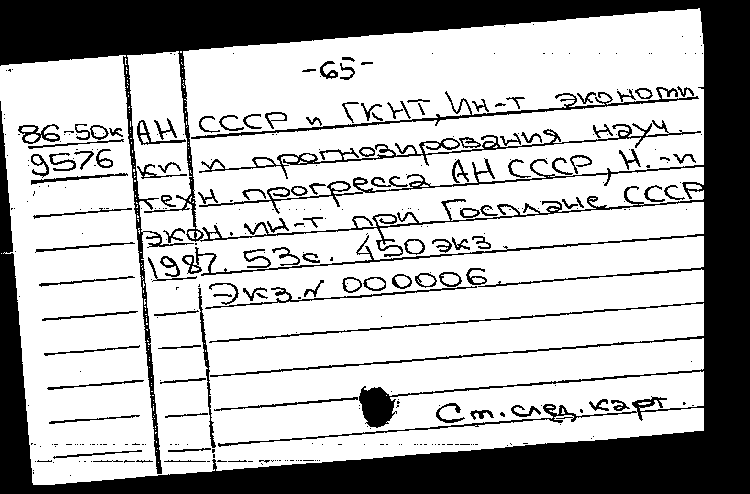 -65-
86-50к АН СССР и ГКНТ, Ин-т экономи-
9576 ки и прогнозирования науч.
техн прогресса АН СССР, Н.-и
экон. ин-т при Госплане СССР
1987. 53с. 450экз.
Экз.N 000006.
Ст. след. карт.